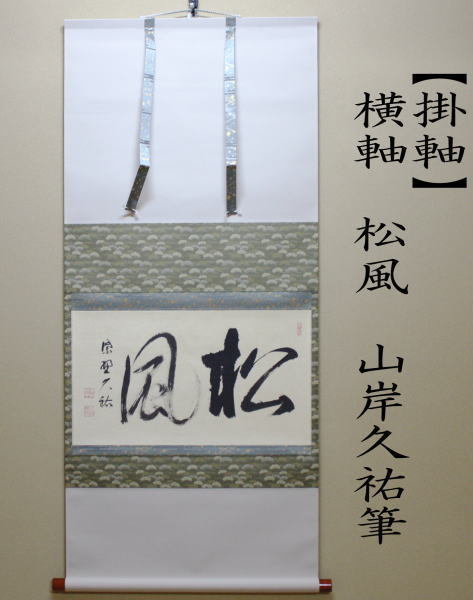 【掛軸】
横軸 松風 山岸久祐筆
松風
紫野久祐